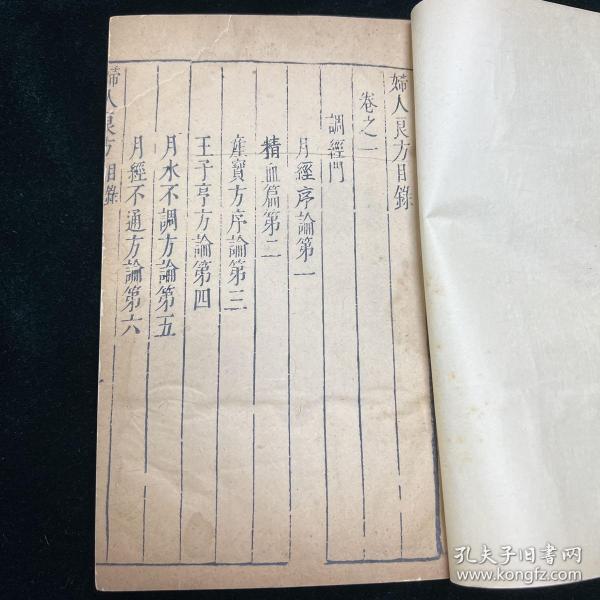 婦人良方目錄
卷之一
調經門
月經序論第一
精血篇第二
產寶方序論第三
王子亨方論第四
月水不調方論第五
月經不通方論第六
婦人良方目錄
孔夫子旧书网
www.kongfz.com